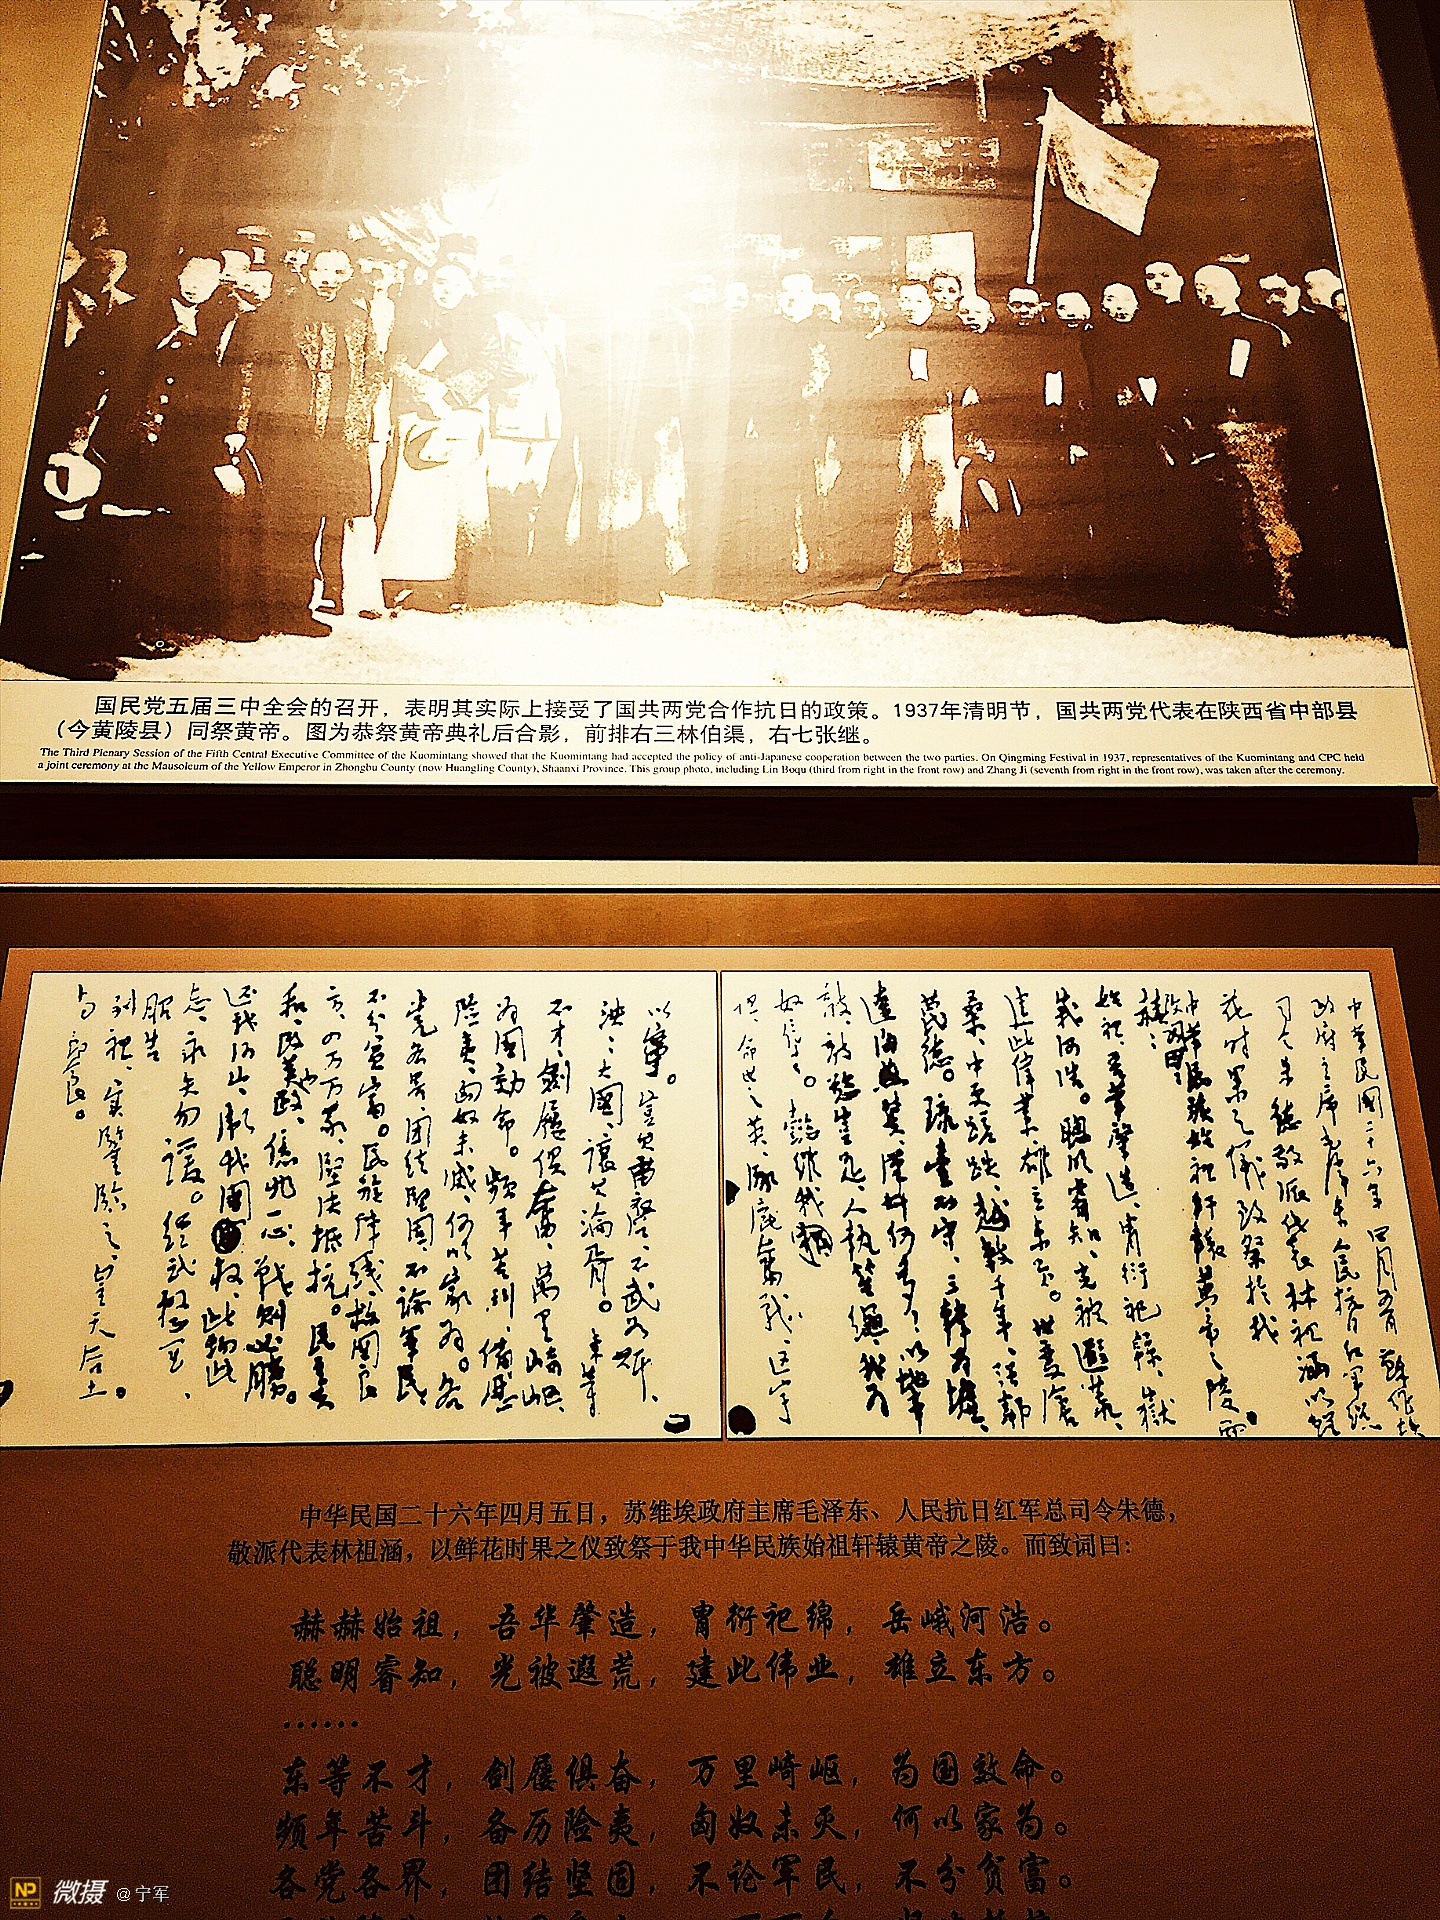 国民党五届三中全会的召开，表明其实际上接受了国共两党合作抗日的政策。1937年清明节，国共两党代表在陕西省中部县
（今黄陵县）同祭黄帝。图为恭祭黄帝典礼后合影，前排右三林伯渠，右七张继。
The Third Plenary Session of the Fifth Central Executive Committee of the Kuomintang showed that the Kuomintang had accepted the policy of anti-Japanese cooperation between the two parties. On Qingming Festival in 1937, representatives of the Kuomintang and CPC held
a joint ceremony at the Mausoleum of the Yellow Emperor in Zhongbu County (now Huangling County), Shaanxi Province. This group photo, including Lin Boqu (third from right in the front row) and Zhang Ji (seventh from right in the front row), was taken after the ceremony.
中華民國二十六年四月五日 蘇維埃
政府主席毛澤東人民抗日紅軍總
司令朱德敬派代表林祖涵以鮮
花时果之儀致祭於我
中華民族始祖軒轅黃帝之陵而
致詞曰：
赫赫
始祖，吾華肇造，胄衍祀綿，嶽
峨河浩。聰明睿知，光被遐荒，
建此偉業，雄立東方。世變滄
桑，中更蹉跌，越數千年，强鄰
蔑德。琉臺不守，三韓為墟，
遼海燕冀，漢奸何多！以地事
敵，敵慾豈足，人執笞繩，我為
奴辱。懿維我祖，
命世之英，涿鹿奮戰，區宇
以寧。豈其苗裔，不武如斯，
泱泱大國，讓其淪胥。東等
不才，劍屨俱奮，萬里崎嶇，
為國效命。頻年苦鬥，備歷
險夷，匈奴未滅，何以家為。各
党各界，团结坚固，不論軍民，
不分貧富。民族陣綫，救國良
方，四万万衆，坚决抵抗。民主共
和，改革内政，億兆一心，戰則必勝。
还我河山，衛我國權，此物此
志，永矢勿諼。經武整軍，
昭告
列祖，實鑒臨之，皇天后土。
尚饗。
中华民国二十六年四月五日，苏维埃政府主席毛泽东、人民抗日红军总司令朱德，
敬派代表林祖涵，以鲜花时果之仪致祭于我中华民族始祖轩辕黄帝之陵。而致词曰：
赫赫始祖，吾华肇造，胄衍祀绵，岳峨河浩。
聪明睿知，光被遐荒，建此伟业，雄立东方。
……
东等不才，剑屦俱奋，万里崎岖，为国效命。
频年苦斗，备历险夷，匈奴未灭，何以家为。
各党各界，团结坚固，不论军民，不分贫富。
NP 微摄 @宁军